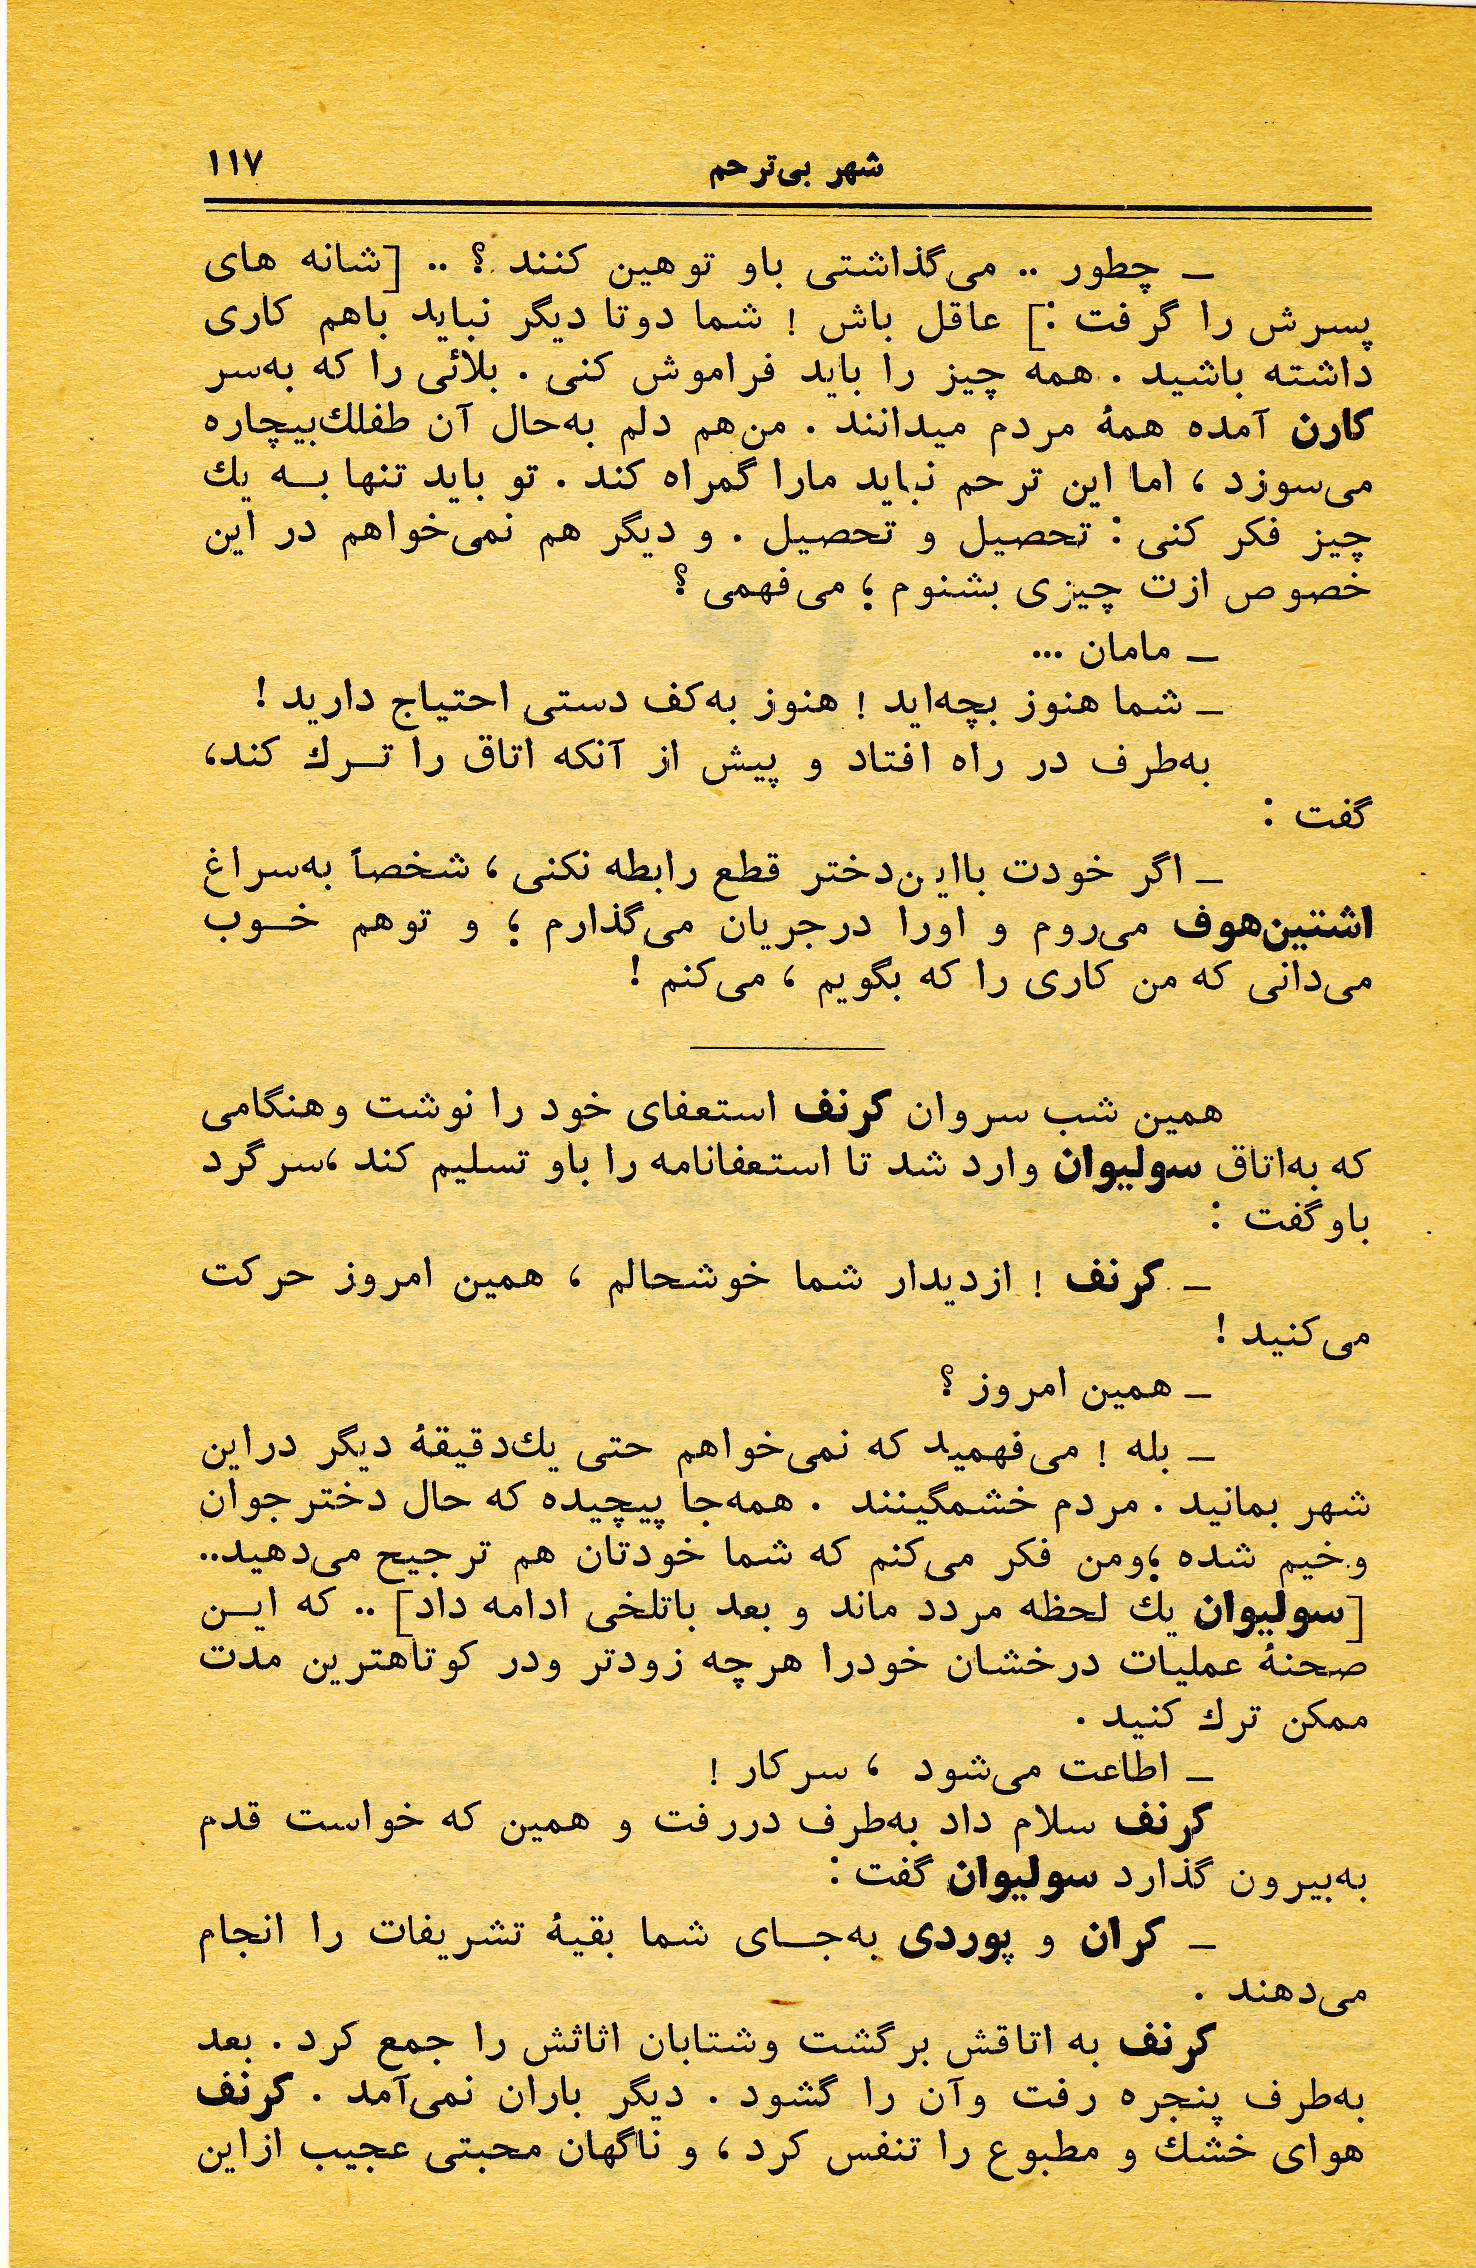 شهر بی‌ترحم ۱۱۷
ـ چطور .. می‌گذاشتی باو توهین کنند ؟ .. [شانه های
پسرش را گرفت :] عاقل باش ! شما دوتا دیگر نباید باهم کاری
داشته باشید . همه چیز را باید فراموش کنی . بلائی را که به‌سر
کارن آمده همهٔ مردم میدانند . من‌هم دلم به‌حال آن طفلك‌بیچاره
می‌سوزد ، اما این ترحم نباید مارا گمراه کند . تو باید تنها بـه یك
چیز فکر کنی : تحصیل و تحصیل . و دیگر هم نمی‌خواهم در این
خصوص ازت چیزی بشنوم ؛ می‌فهمی ؟
ـ مامان ...
ـ شما هنوز بچه‌اید ! هنوز به‌کف دستی احتیاج دارید !
به‌طرف در راه افتاد و پیش از آنکه اتاق را تـرك کند،
گفت :
ـ اگر خودت بااین‌دختر قطع رابطه نکنی ، شخصاً به‌سراغ
اشتین‌هوف می‌روم و اورا درجریان می‌گذارم ؛ و توهم خـوب
می‌دانی که من کاری را که بگویم ، می‌کنم !
همین شب سروان کرنف استعفای خود را نوشت وهنگامی
که به‌اتاق سولیوان وارد شد تا استعفانامه را باو تسلیم کند ،سرگرد
باوگفت :
ـ کرنف ! ازدیدار شما خوشحالم ، همین امروز حرکت
می‌کنید !
ـ همین امروز ؟
ـ بله ! می‌فهمید که نمی‌خواهم حتی یك‌دقیقهٔ دیگر دراین
شهر بمانید . مردم خشمگینند . همه‌جا پیچیده که حال دخترجوان
وخیم شده ؛ومن فکر می‌کنم که شما خودتان هم ترجیح می‌دهید..
[سولیوان یك لحظه مردد ماند و بعد باتلخی ادامه داد] .. که ایـن
صحنهٔ عملیات درخشان خودرا هرچه زودتر ودر کوتاهترین مدت
ممکن ترك کنید .
ـ اطاعت می‌شود ، سرکار !
کرنف سلام داد به‌طرف دررفت و همین که خواست قدم
به‌بیرون گذارد سولیوان گفت :
ـ کران و پوردی به‌جـای شما بقیهٔ تشریفات را انجام
می‌دهند .
کرنف به اتاقش برگشت وشتابان اثاثش را جمع کرد . بعد
به‌طرف پنجره رفت وآن را گشود . دیگر باران نمی‌آمد . کرنف
هوای خشك و مطبوع را تنفس کرد ، و ناگهان محبتی عجیب ازاین